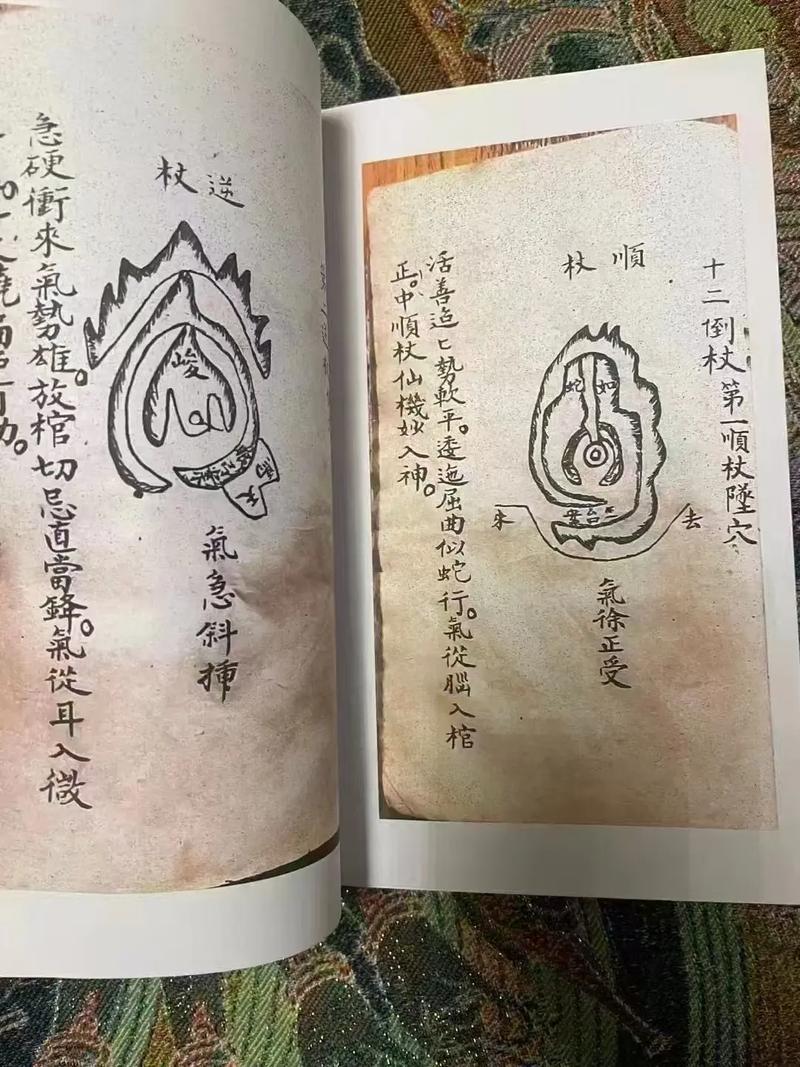 十二倒杖 第一順杖墜穴
順杖
如蛇
三台案
去
來
氣徐正受
活善迤〻勢軟平。逶迤屈曲似蛇行。氣從腦入棺
正中。順杖仙機妙入神。
逆杖
峻
氣急斜揷
急硬衝來氣勢雄。放棺切忌直當鋒。氣從耳入微